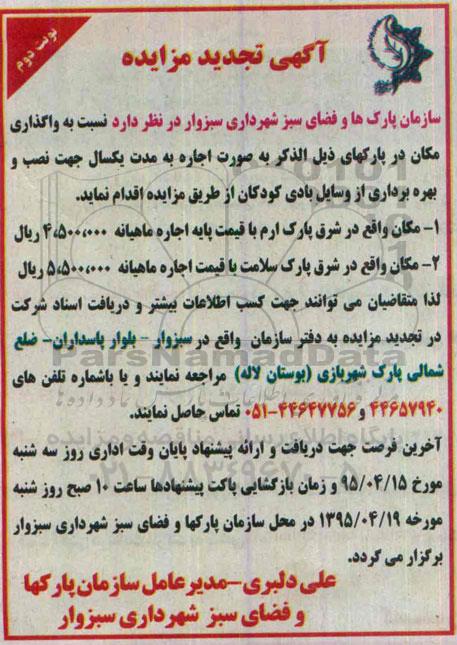 نوبت دوم
آگهی تجدید مزایده
سازمان پارک ها و فضای سبز شهرداری سبزوار در نظر دارد نسبت به واگذاری
مکان در پارکهای ذیل الذکر به صورت اجاره به مدت یکسال جهت نصب و
بهره برداری از وسایل بادی کودکان از طریق مزایده اقدام نماید.
۱- مکان واقع در شرق پارک ارم با قیمت پایه اجاره ماهیانه ۴،۵۰۰،۰۰۰ ریال
۲- مکان واقع در شرق پارک سلامت با قیمت اجاره ماهیانه ۵،۵۰۰،۰۰۰ ریال
لذا متقاضیان می توانند جهت کسب اطلاعات بیشتر و دریافت اسناد شرکت
در تجدید مزایده به دفتر سازمان واقع در سبزوار - بلوار پاسداران- ضلع
شمالی پارک شهربازی (بوستان لاله) مراجعه نمایند و یا باشماره تلفن های
۴۴۶۵۷۹۴۰ و ۴۴۶۴۷۷۵۶-۰۵۱ تماس حاصل نمایند.
آخرین فرصت جهت دریافت و ارائه پیشنهاد پایان وقت اداری روز سه شنبه
مورخ ۹۵/۰۴/۱۵ و زمان بازگشایی پاکت پیشنهادها ساعت ۱۰ صبح روز شنبه
مورخه ۱۳۹۵/۰۴/۱۹ در محل سازمان پارکها و فضای سبز شهرداری سبزوار
برگزار می گردد.
علی دلبری-مدیرعامل سازمان پارکها
و فضای سبز شهرداری سبزوار
ParsNamadData
۰۲۱-۸۸۳۴۹۶۷۰-۵